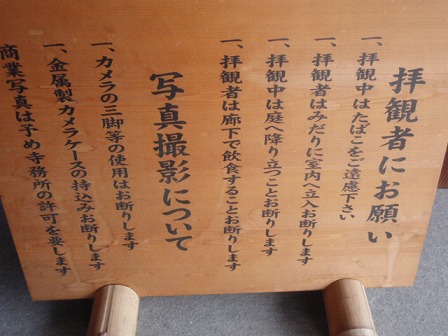 拝観者にお願い
一、拝観中はたばこをご遠慮下さい
一、拝観者はみだりに室内へ立入お断りします
一、拝観中は庭へ降り立つことお断りします
一、拝観者は廊下で飲食することお断りします
写真撮影について
一、カメラの三脚等の使用はお断りします
一、金属製カメラケースの持込みお断りします
商業写真は予め寺務所の許可を要します